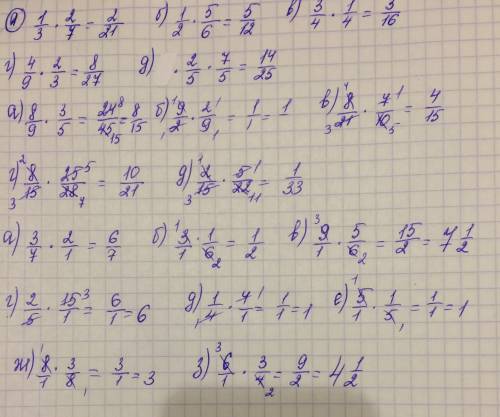 а) 1/3 · 2/7 = 2/21 б) 1/2 · 5/6 = 5/12 в) 3/4 · 1/4 = 3/16
г) 4/9 · 2/3 = 8/27 д) · 2/5 · 7/5 = 14/25
а) 8/9 · 3/5 = 24/45 = 8/15 б) 9/2 · 2/9 = 1/1 = 1 в) 8/21 · 7/10 = 4/15
г) 8/15 · 25/28 = 10/21 д) 2/15 · 5/22 = 1/33
а) 3/7 · 2/1 = 6/7 б) 3/1 · 1/6 = 1/2 в) 9/1 · 5/6 = 15/2 = 7 1/2
г) 2/5 · 15/1 = 6/1 = 6 д) 1/4 · 4/1 = 1/1 = 1 е) 5/1 · 1/5 = 1/1 = 1
ж) 8/1 · 3/8 = 3/1 = 3 з) 6/1 · 3/4 = 9/2 = 4 1/2